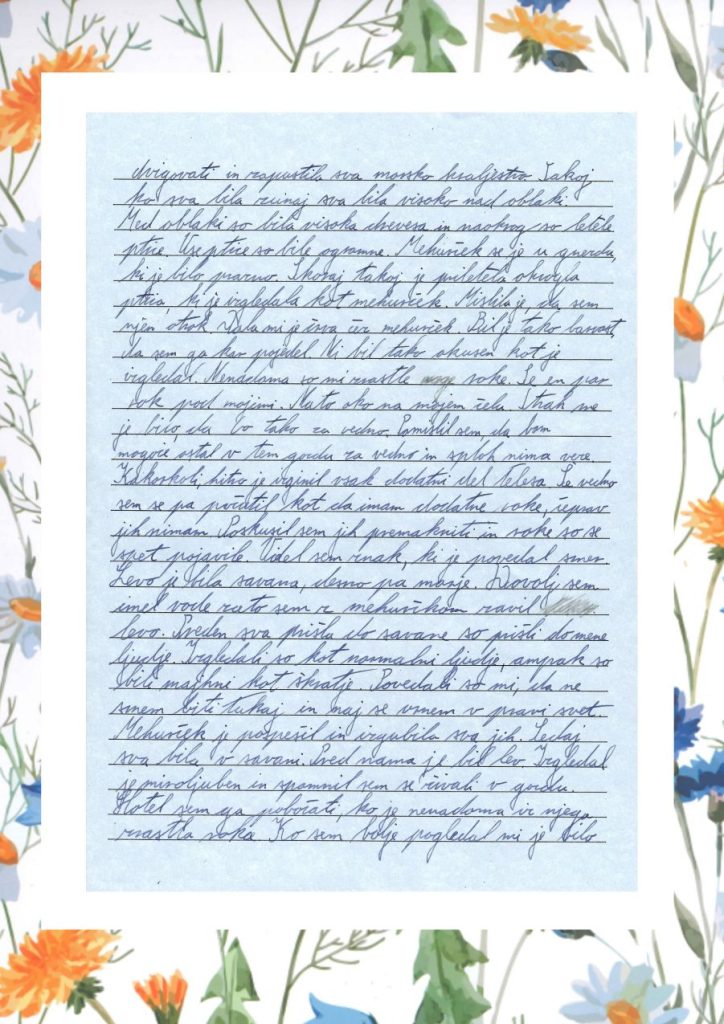 dvigovati in zapustila sva morsko kraljestvo. Takoj
ko sva bila zunaj sva bila visoko nad oblaki.
Med oblaki so bila visoka drevesa in naokrog so letele
ptice. Vse ptice so bile ogromne. Mehurček se je u gnezdu,
ki je bilo prazno. Skoraj takoj je priletela okrogla
ptica, ki je izgledala kot mehurček. Mislila je, da sem
njen otrok. Dala mi je črva čez mehurček. Bil je tako barvast,
da sem ga kar pojedel. Ni bil tako okusen kot je
izgledal. Nenadoma so mi zrastle roke. Še en par
rok pod mojimi. Nato oko na mojem čelu. Strah me
je bilo, da bo tako za vedno. Pomislil sem, da bom
mogoče ostal v tem gozdu za vedno in sploh nima veze.
Kakorkoli, hitro je izginil vsak dodatni del telesa. Še vedno
sem se pa počutil, kot da imam dodatne roke, čeprav
jih nimam. Poskusil sem jih premakniti in roke so se
spet pojavile. Videl sem znak, ki je povedal smer.
Levo je bila savana, desno pa morje. Dovolj sem
imel vode zato sem z mehurčkom zavil
levo. Preden sva prišla do savane so prišli do mene
ljudje. Izgledali so kot normalni ljudje, ampak so
bili majhni kot škratje. Povedali so mi, da ne
smem biti tukaj in naj se vrnem v pravi svet.
Mehurček je pospešil in izgubila sva jih. Sedaj
sva bila v savani. Pred nama je bil lev. Izgledal
je miroljuben in spomnil sem se živali v gozdu.
Hotel sem ga pobožati, ko je nenadoma iz njega
zrastla roka. Ko sem bolje pogledal mi je bilo